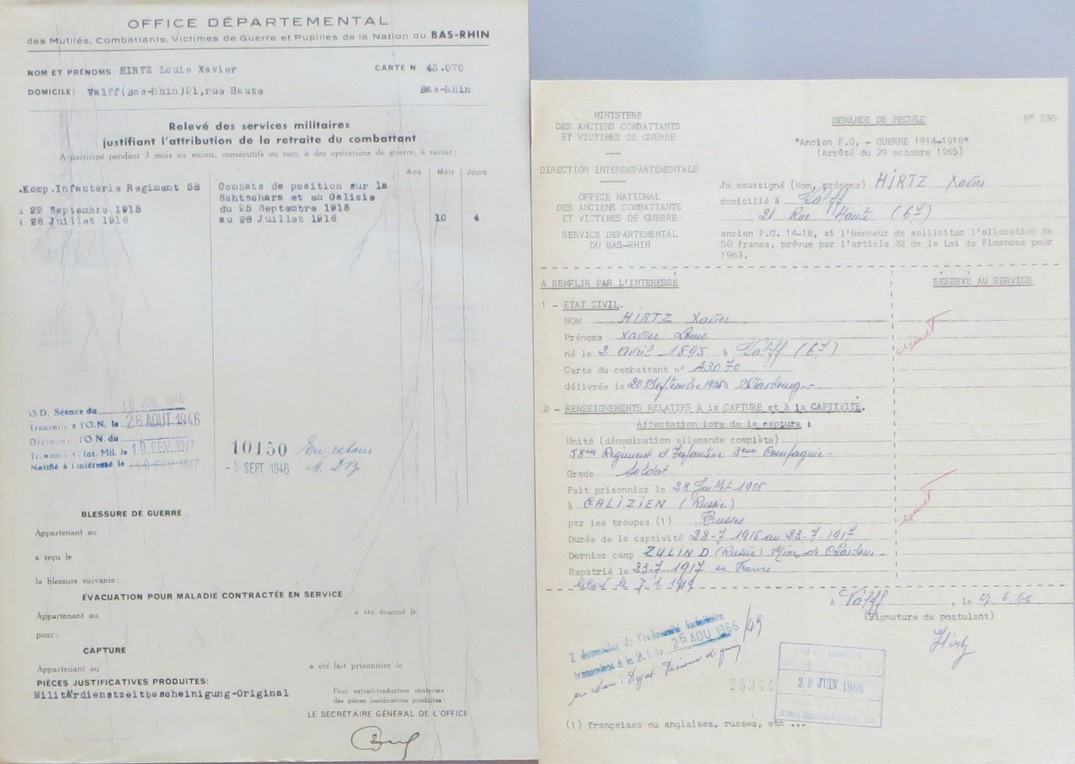 OFFICE DÉPARTEMENTAL
des Mutilés, Combattants, Victimes de Guerre et Pupilles de la Nation du BAS-RHIN
NOM ET PRÉNOMS: HIRTZ Louis Xavier
CARTE N 43.070
DOMICILE: Valff(Bas-Rhin)21,rue Haute
Bas-Rhin
Relevé des services militaires
justifiant l'attribution de la retraite du combattant
A participé pendant 3 mois au moins, consécutifs ou non, à des opérations de guerre, à savoir:
Ans Mois Jours
.Komp.Infanterie Regiment 58
22 Septembre 1915
28 Juillet 1916
Combats de position sur la
Schtschara et en Galicie
du 25 Septembre 1915
au 28 Juillet 1916
10 4
O.D. Séance du
Transmis à l'O.N. le 26 AOUT 1946
l'O.N. du
Int. Mil. le 10 FÉV. 1947
Notifié à l'intéressé le
10150
- 5 SEPT 1946
En retour
BLESSURE DE GUERRE
Appartenant au
a reçu le
la blessure suivante:
ÉVACUATION POUR MALADIE CONTRACTÉE EN SERVICE
Appartenant au
a été évacué le
pour:
CAPTURE
Appartenant au
a été fait prisonnier le
PIÈCES JUSTIFICATIVES PRODUITES:
Militärdienstzeitbescheinigung-Original
Pour extrait-traduction conforme
des pièces justificatives produites:
LE SECRÉTAIRE GÉNÉRAL DE L'OFFICE
MINISTERE
DES ANCIENS COMBATTANTS
ET VICTIMES DE GUERRE
DIRECTION INTERDEPARTEMENTALE
OFFICE NATIONAL
DES ANCIENS COMBATTANTS
ET VICTIMES DE GUERRE
SERVICE DEPARTEMENTAL
DU BAS-RHIN
DEMANDE DE PECULE
N° 230
"Ancien P.G. - GUERRE 1914-1918"
(Arrêté du 29 octobre 1965)
Je soussigné (Nom, prénoms) HIRTZ Xavier
domicilié à Valff
21 Rue Haute (67)
ancien P.G. 14-18, ai l'honneur de solliciter l'allocation de
50 francs, prévue par l'article 32 de la Loi de Finances pour
1963.
A REMPLIR PAR L'INTERESSE
RÉSERVÉ AU SERVICE
1 - ETAT CIVIL.
NOM HIRTZ Xavier
Prénoms Xavier Louis
né le 2 avril 1895 à Valff (67)
Carte du combattant n° 43070
délivrée le 20 Septembre Strasbourg
2 - RENSEIGNEMENTS RELATIFS À la CAPTURE et à la CAPTIVITÉ.
Affectation lors de la capture :
Unité (dénomination allemande complète)
58em Regiment d'Infanterie 3eme Compagnie
Grade Soldat
Fait prisonnier le 28 Juillet 1916
à GALIZIEN (Russie)
par les troupes (1) Russes
Durée de la captivité 28-7-1916 au 23-7-1917
Dernier camp ZULIND (Russie)
Rapatrié le 23-7-1917 en France
A Valff, le 27.6.66
(Signature du postulant)
Hirtz
26 AOU 1966 /49
25344
28 JUIN 1966
(1) françaises ou anglaises, russes, etc ...